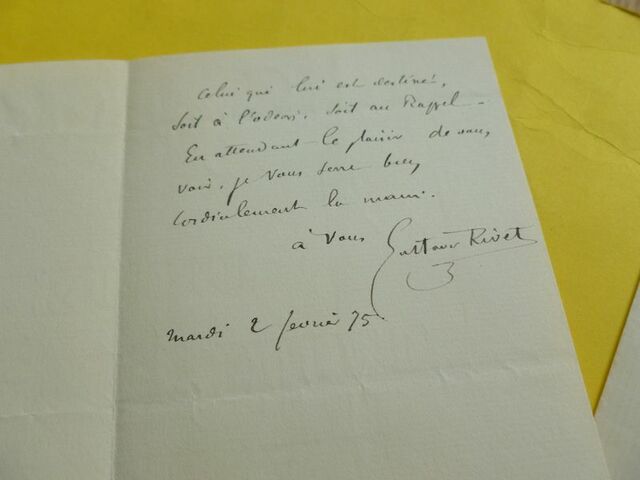 celui qui lui est destiné,
soit à l'odéon, soit au Rappel -
En attendant le plaisir de vous
voir, je vous serre bien
cordialement la main.
à vous Gustave Rivet
mardi 2 février 75